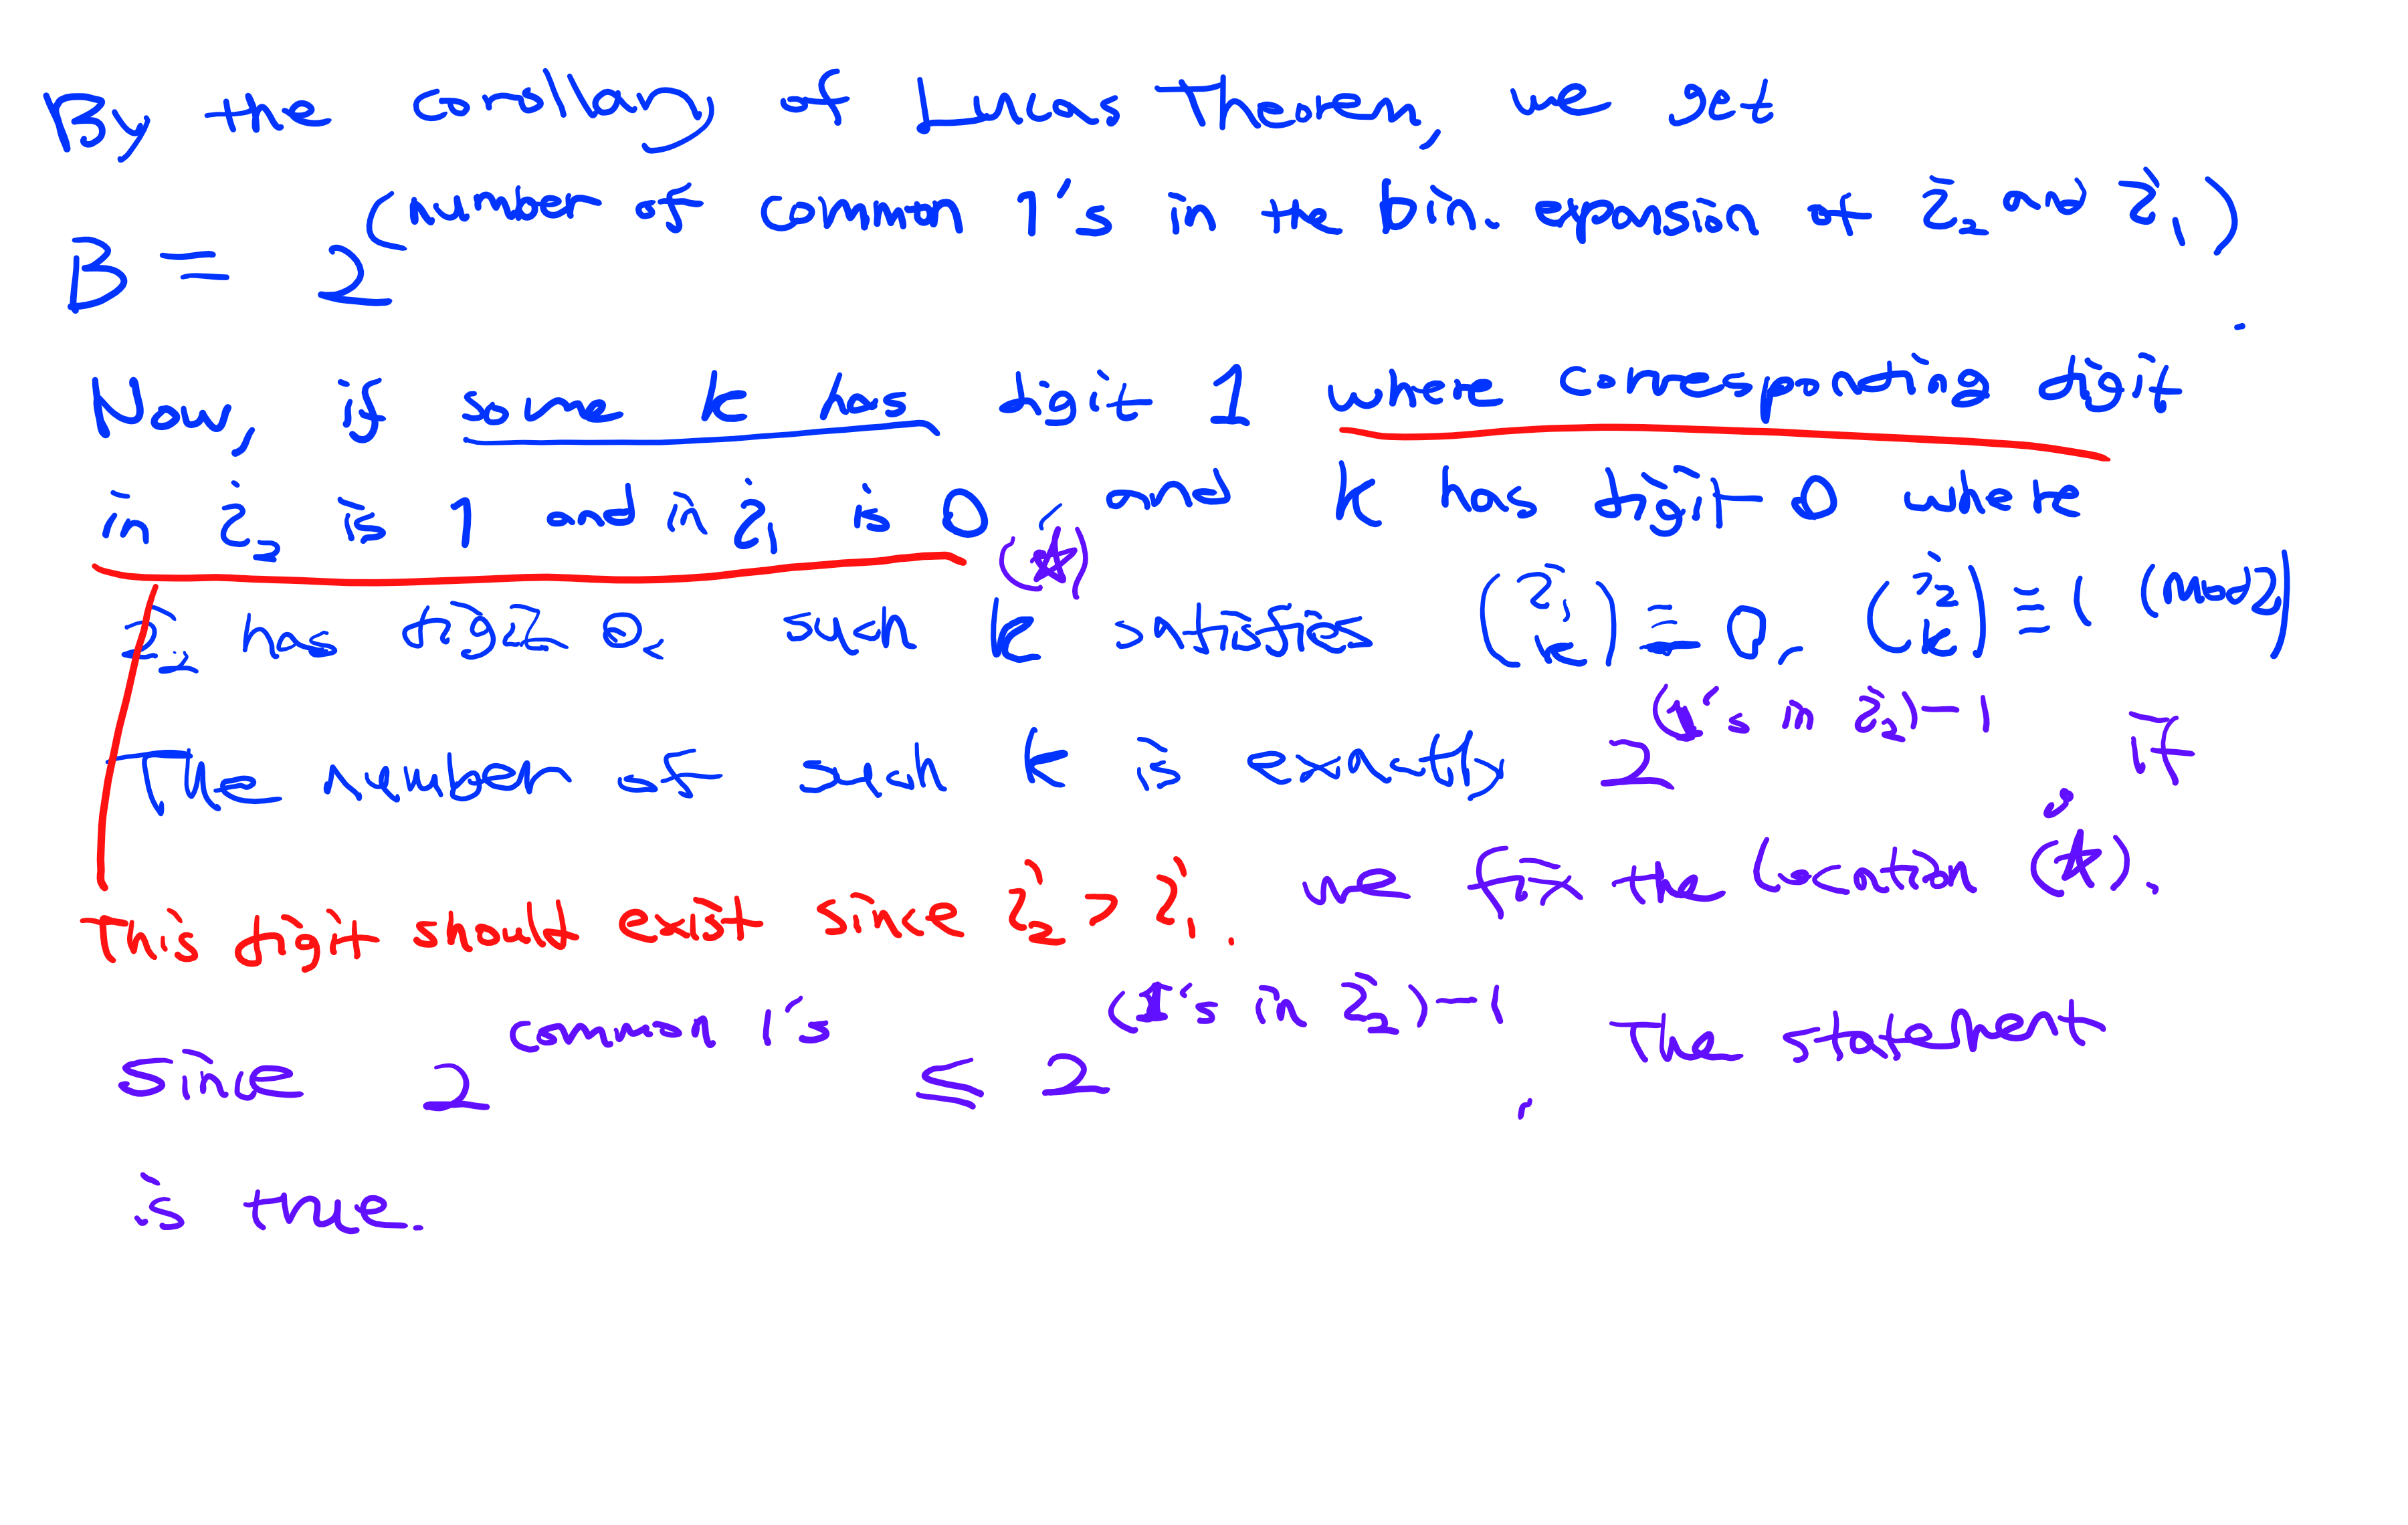 By the corollary of Lucas Theorem, we get
B = 2^(number of common 1's in the bin. expansion of i₂ and i₁).
Now, if some k has digit 1 where corresponding digit
in i₂ is 1 and in i₁ is 0 (★), and k has digit 0 where
i₂ has digit 0, such k satisfies (i₁ k) ≡ 0, (i₂ k) ≡ 1 (mod 2)
The number of such k is exactly 2^((1's in i₂)-1) if
we fix the location (★).
This digit should exist since i₂ > i₁.
Since 2^(common 1's) ≤ 2^((1's in i₂)-1), The statement
is true.